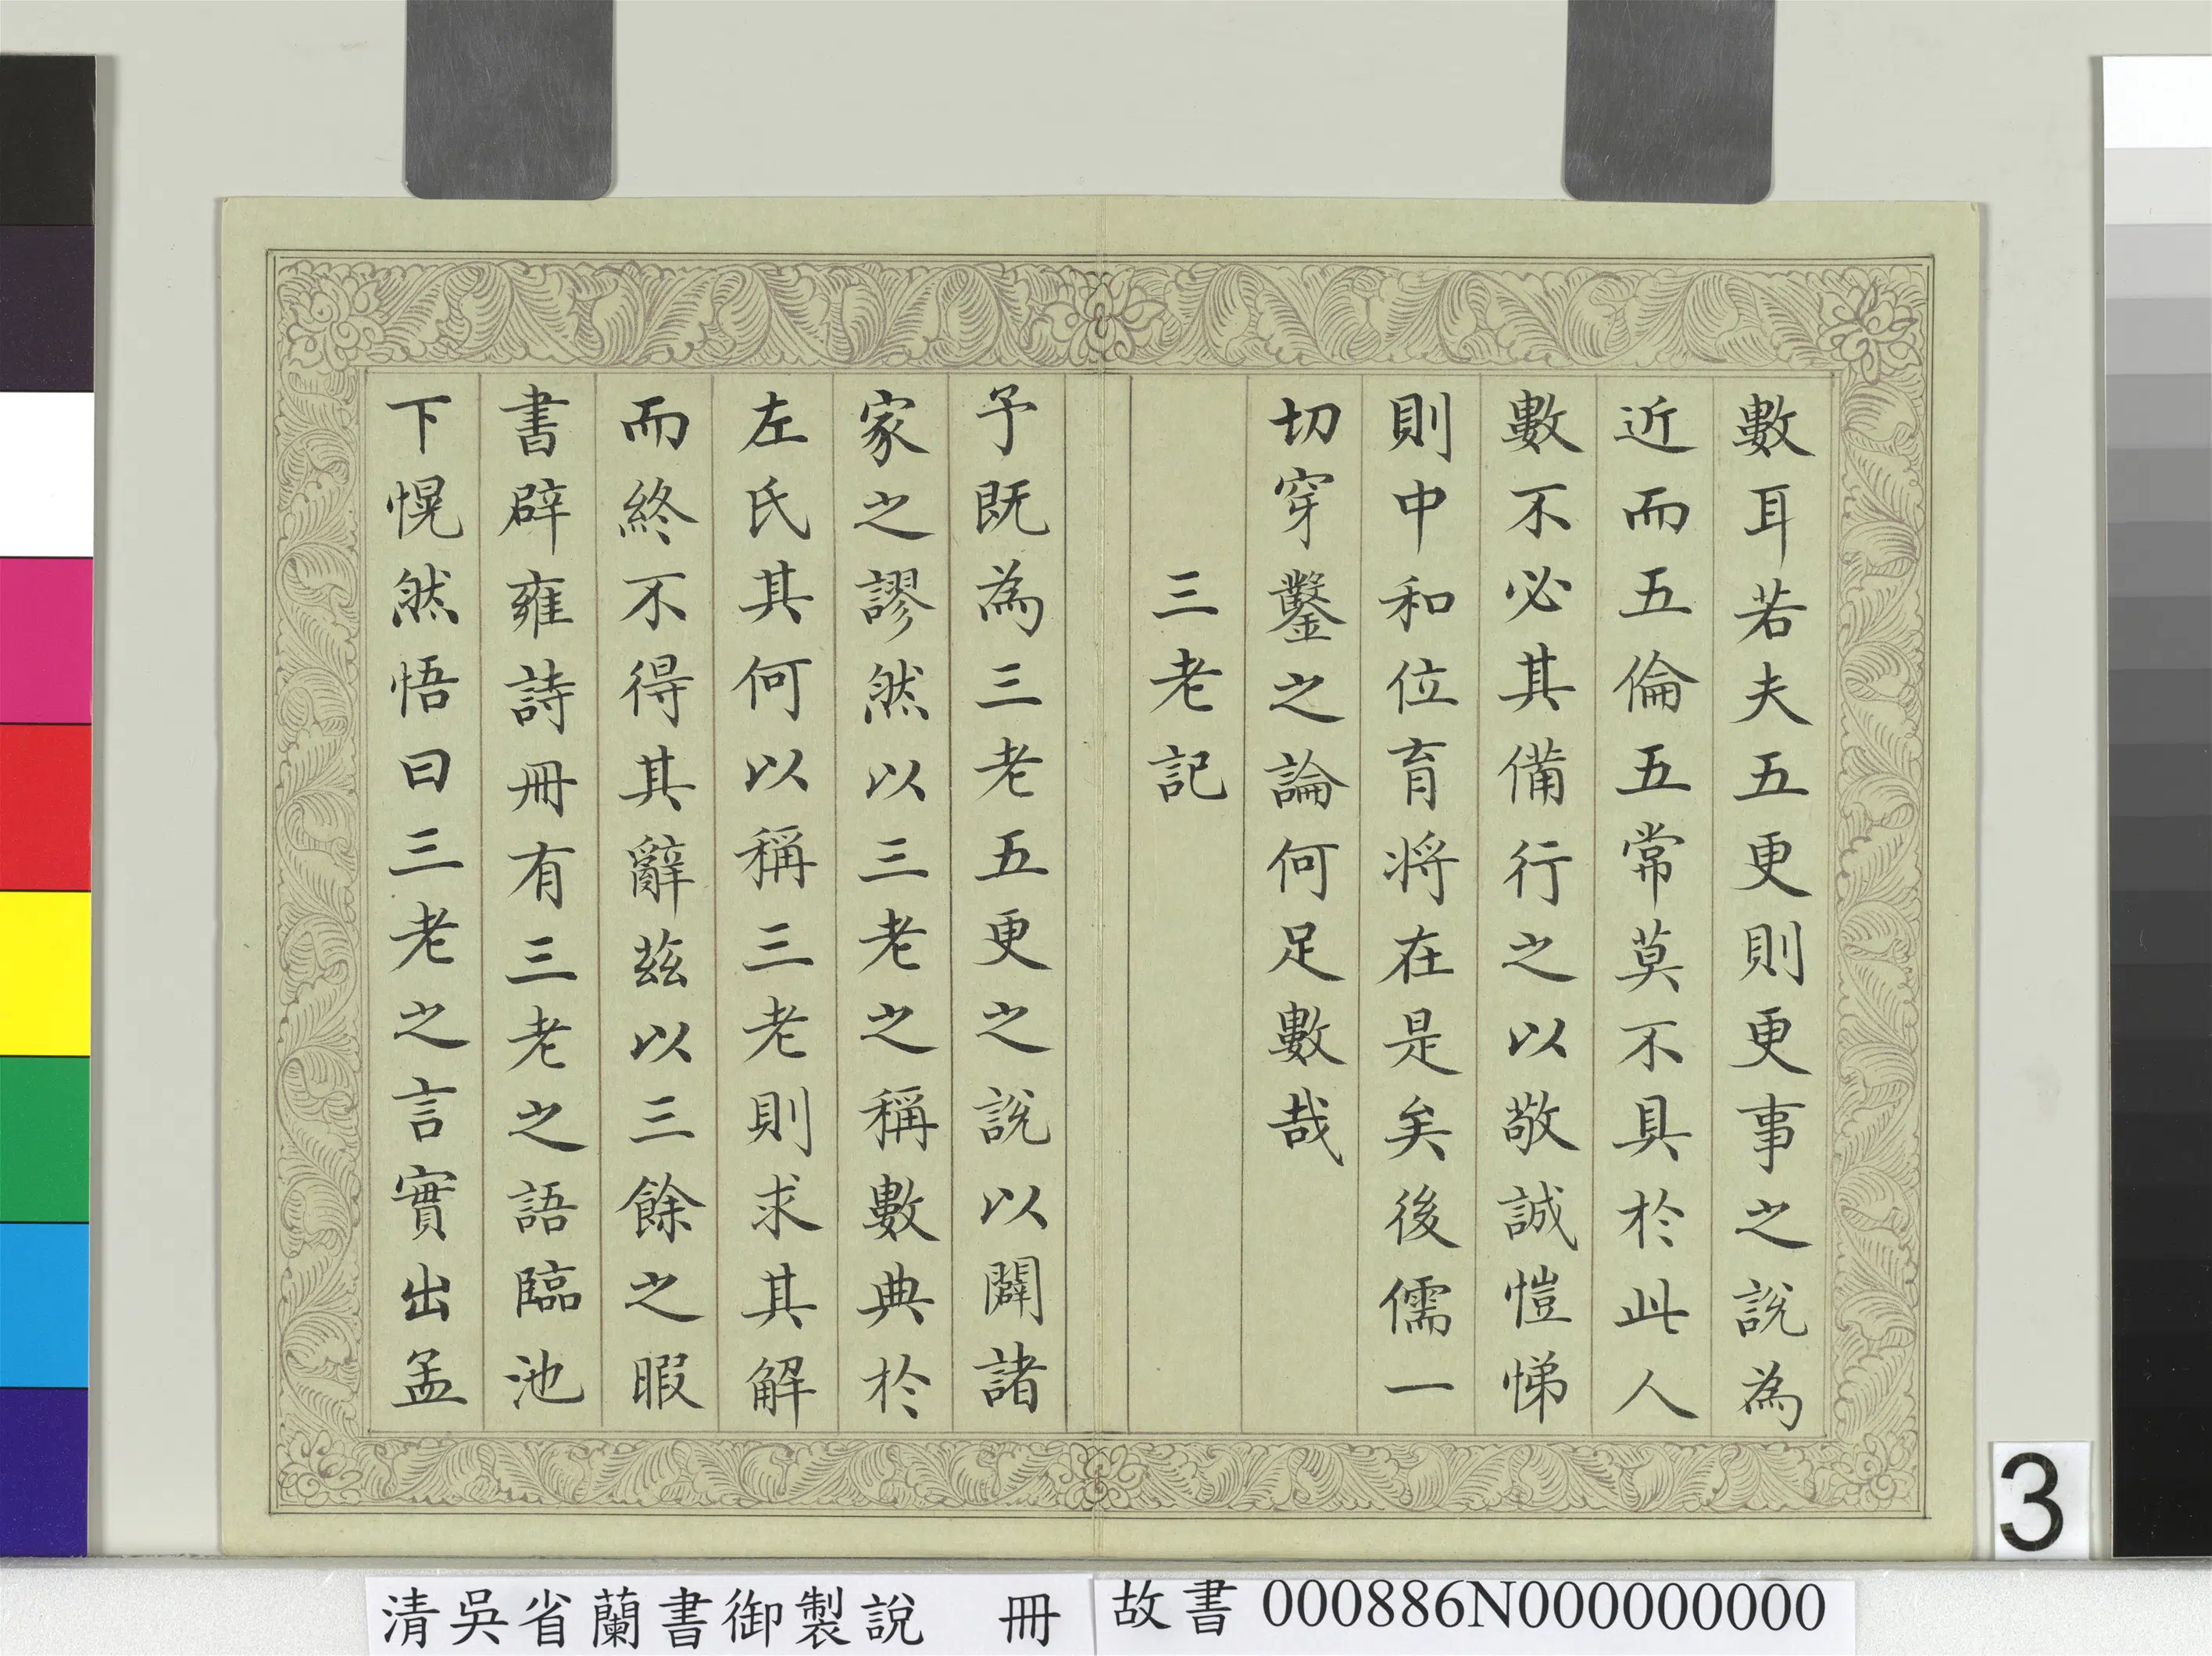 數耳若夫五更則更事之說為
近而五倫五常莫不具於此人
數不必其備行之以敬誠愷悌
則中和位育將在是矣後儒一
切穿鑿之論何足數哉
三老記
予既為三老五更之說以闢諸
家之謬然以三老之稱數典於
左氏其何以稱三老則求其解
而終不得其辭茲以三餘之暇
書辟雍詩冊有三老之語臨池
下愰然悟曰三老之言實出孟
3
清吳省蘭書御製說　冊
故書 000886N000000000